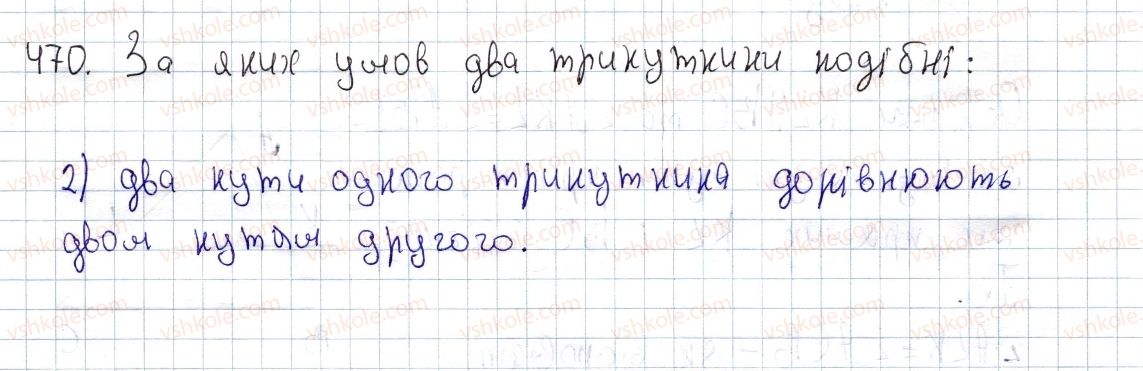 470. За яких умов два трикутники подібні:
2) два кути одного трикутника дорівнюють
двом кутам другого.